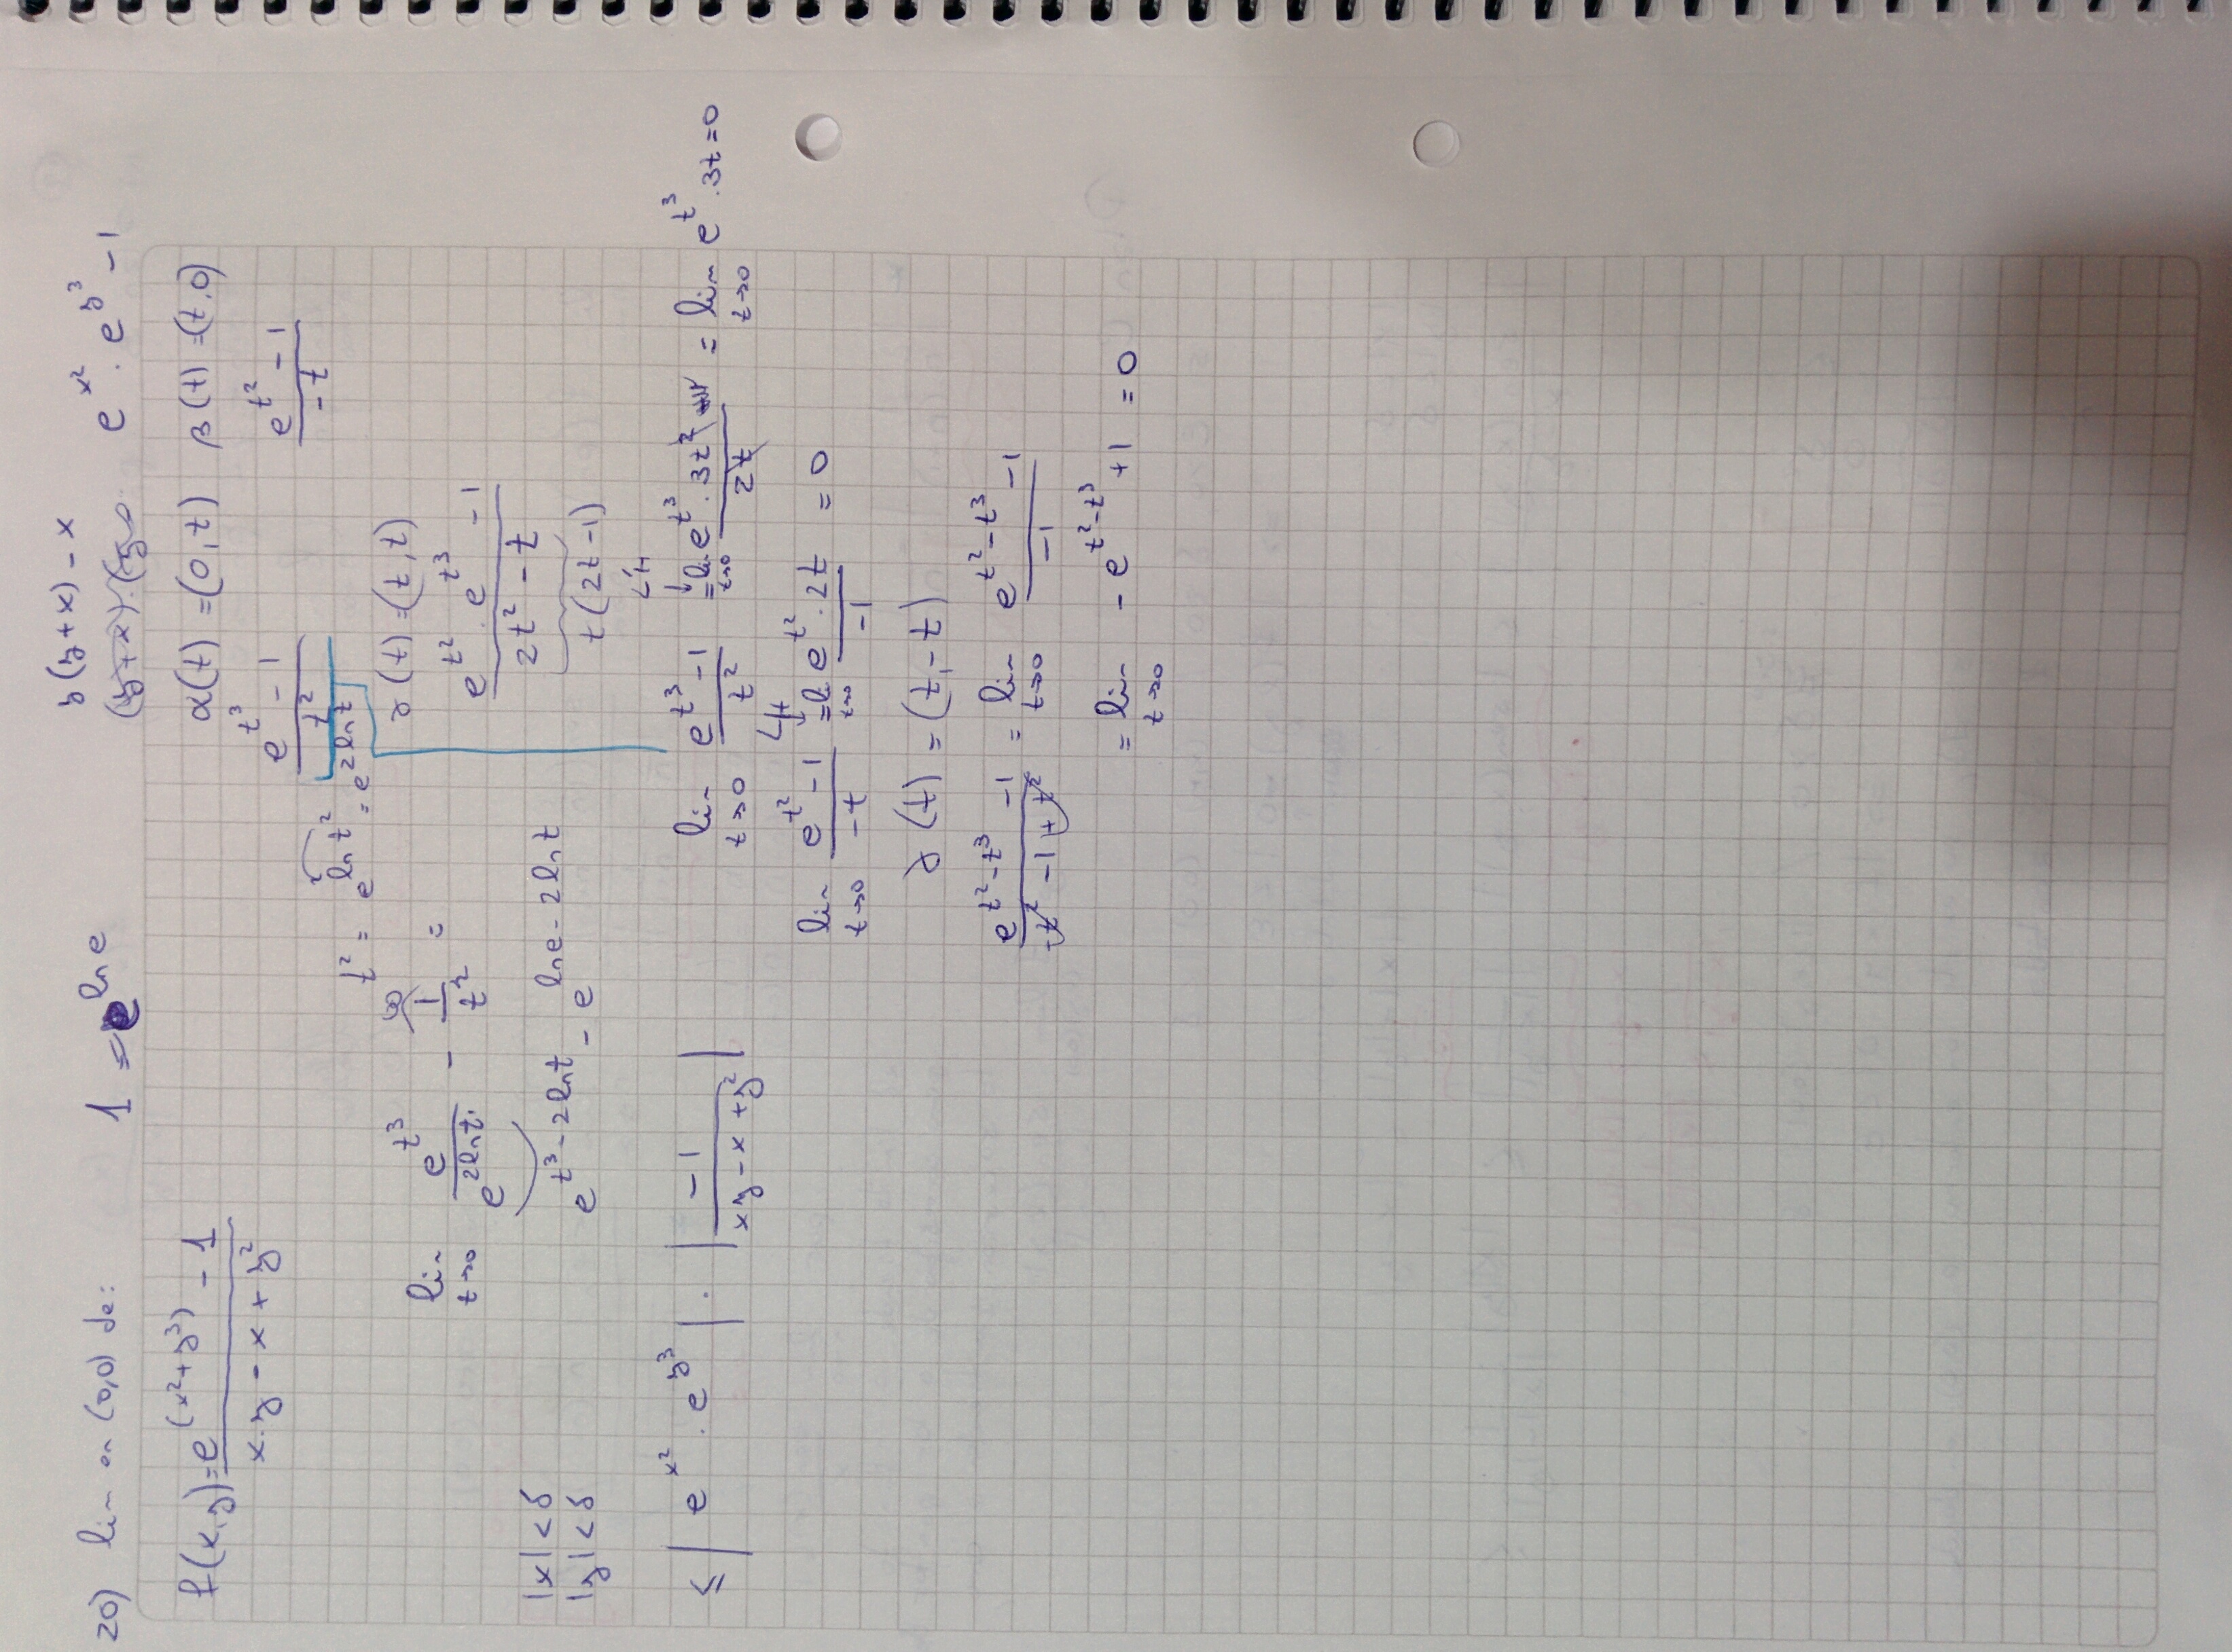 20) lim en (0,0) de:
1 = e^(ln e)
y(y+x) - x
(y+x).(y
e^(x²) . e^(y³) - 1
f(x,y) = (e^(x²+y³) - 1) / (x.y - x + y²)
α(t) = (0,t)
β(t) = (t,0)
(e^(t³) - 1) / t²
(e^(t²) - 1) / -t
t² = e^(ln t²) = e^(2 ln t)
γ(t) = (t,t)
lim t→0 e^(t³) / e^(2 ln t) - 1/t² =
∞
(e^(t²) . e^(t³) - 1) / (2t² - t)
|x| < δ
|y| < δ
e^(t³ - 2 ln t) - e^(ln e - 2 ln t)
t(2t - 1)
L'H
≤ | e^(x²) . e^(y³) | . | -1 / (xy - x + y²) |
lim t→0 (e^(t³) - 1) / t² = lim t→0 (e^(t³) . 3t²) / 2t = lim t→0 e^(t³) . 3t = 0
L'H
lim t→0 (e^(t²) - 1) / -t = lim t→0 (e^(t²) . 2t) / -1 = 0
γ(t) = (t, -t)
(e^(t²-t³) - 1) / (-t² - 1 + t²) = lim t→0 (e^(t²-t³) - 1) / -1
= lim t→0 - e^(t²-t³) + 1 = 0